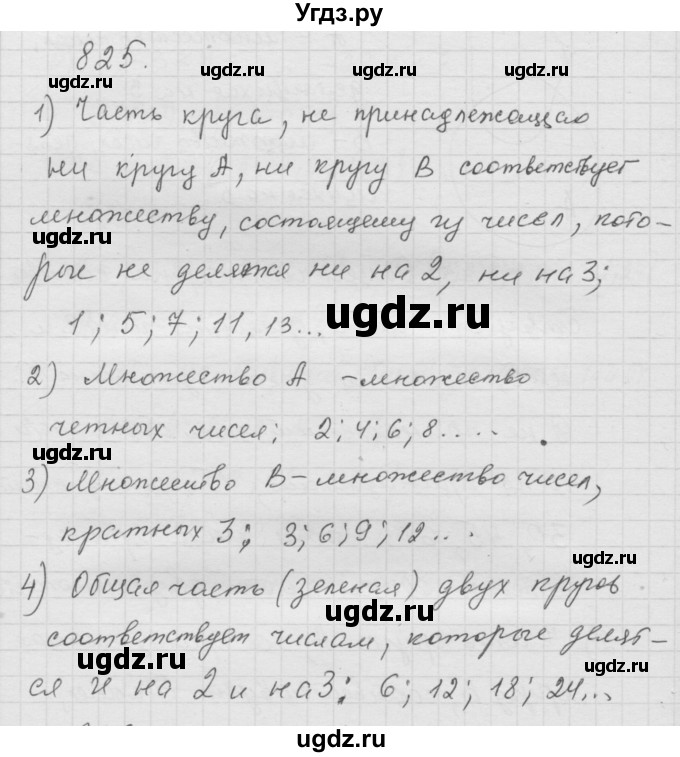 Угдз.ру
825.
ugdz.ru ugdz.ru ugdz.ru
1) Часть круга, не принадлежащаю
ни кругу А, ни кругу В соответствует
множеству, состоящему из чисел, кото-
ugdz.ru ugdz.ru
рые не делятся ни на 2, ни на 3;
1; 5; 7; 11, 13...
ugdz.ru
2) Множество А - множество
ugdz.ru
четных чисел; 2; 4; 6; 8.....
ugdz.ru
3) Множество В - множество чисел,
кратных 3; 3; 6; 9; 12...
ugdz.ru
4) Общая часть (зеленая) двух кругов
ugdz.ru
соответствует числам, которые делят-
ugdz.ru ugdz.ru
ся и на 2 и на 3: 6; 12; 18; 24...
ugdz.ru ugdz.ru
ugdz.ru